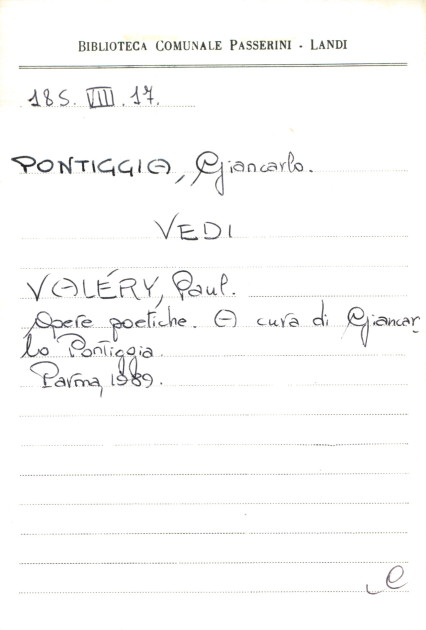 BIBLIOTECA COMUNALE PASSERINI - LANDI
18S. VIII. 17.
PONTIGGIA, Giancarlo.
VEDI
VALÉRY, Paul.
Opere poetiche. A cura di Giancar-
lo Pontiggia.
Parma, 1989.